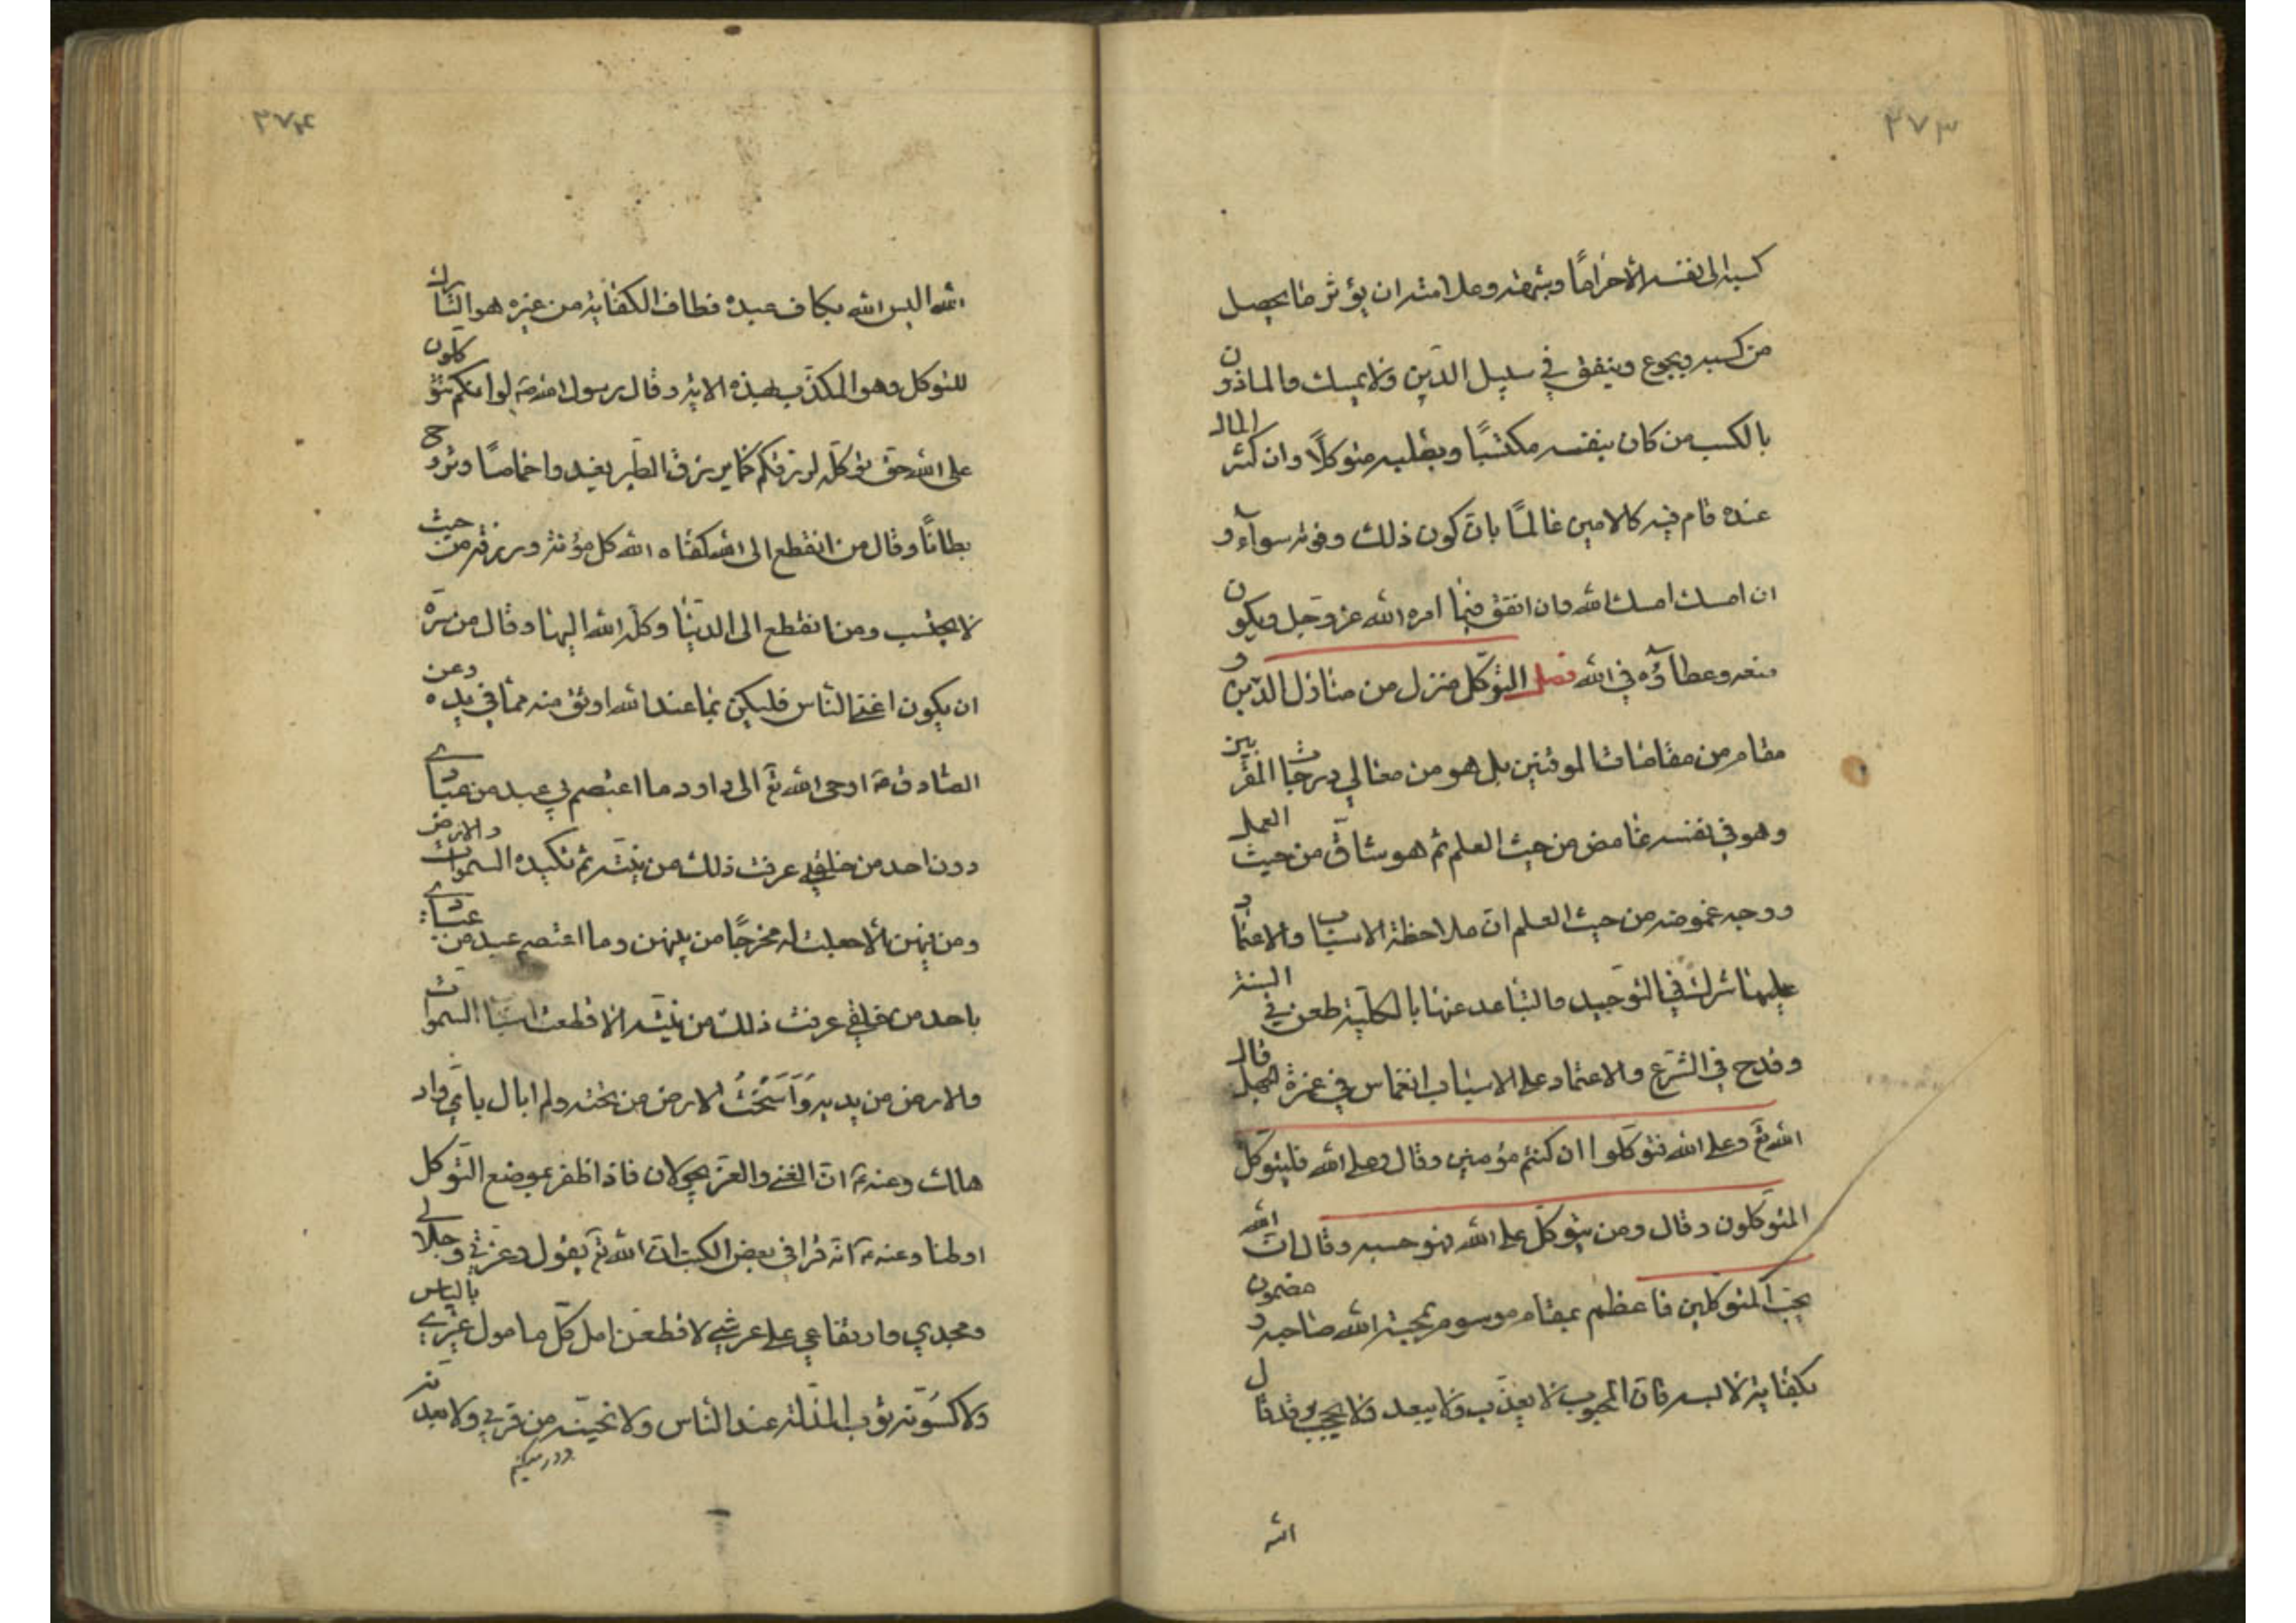 ۳۷۳
كسبه الى نفسه الا حراما وشبهة وعلامته ان يؤثر ما يحصل
من كسبه ويجوع وينفق في سبيل الدين ولا يمسك والماذون
بالكسب من كان بنفسه مكتسبًا وبقلبه متوكلًا وان كثر المال
عنده قام فيه كالامين عالمًا بان كون ذلك وفوته سوآء و
ان امسك امسك لله وان انفق فيما امره الله عز وجل ويكون
منعه وعطاؤه في الله فصل التوكل منزل من منازل الدين و
مقام من مقامات الموقنين بل هو من معالي درجات المقربين
وهو في نفسه غامض من حيث العلم ثم هو شاق من حيث العمل
ووجه غموضه من حيث العلم ان ملاحظة الاسباب والاعتماد
عليها شرك في التوحيد والتباعد عنها بالكلية طعن في السنة
وقدح في الشرع والاعتماد على الاسباب انغماس في غمرة الجهل قال
الله تع وعلى الله فتوكلوا ان كنتم مؤمنين وقال وعلى الله فليتوكل
المتوكلون وقال ومن يتوكل على الله فهو حسبه وقال ان الله
يحب المتوكلين فاعظم بمقام موسوم بمحبة الله صاحبه و مضمون
بكفاية لابسه فان المحبوب لا يعذب ولا يبعد ولا يحجب وقد قال
الله
۳۷۴
الله اليس الله بكاف عبده فطالب الكفاية من غيره هو التارك
للتوكل وهو المكذب بهذه الاية وقال رسول الله ص لو انكم تتوكلون
على الله حق توكله لرزقكم كما يرزق الطير يغدوا خماصًا وتروح
بطانًا وقال من انقطع الى الله كفاه الله كل مؤنة ورزقه من حيث
لا يحتسب ومن انقطع الى الدنيا وكله الله اليها وقال من سره
ان يكون اغنى الناس فليكن بما عند الله اوثق منه مما في يده وعن
الصادق ع اوحى الله تع الى داود ما اعتصم بي عبد من عبادي
دون احد من خلقي عرفت ذلك من نيته ثم تكيده السموات والارض
ومن فيهن الا جعلت له مخرجًا من بينهن وما اعتصم عبد من عبادي
باحد من خلقي عرفت ذلك من نيته الا قطعت اسباب السموات
والارض من يديه وَاَسَخْتُ الارض من تحته ولم ابال باي واد
هلك وعنه ع ان الغنى والعز يجولان فاذا ظفر بموضع التوكل
اوطنا وعنه ع انه قرا في بعض الكتب ان الله تع يقول وعزتي وجلالي
ومجدي وارتفاعي على عرشي لاقطعن امل كل مامول غيري بالياس
ولاكسونه ثوب المذلة عند الناس ولانحينه من قربي ولابعدنه
دور ميكنم